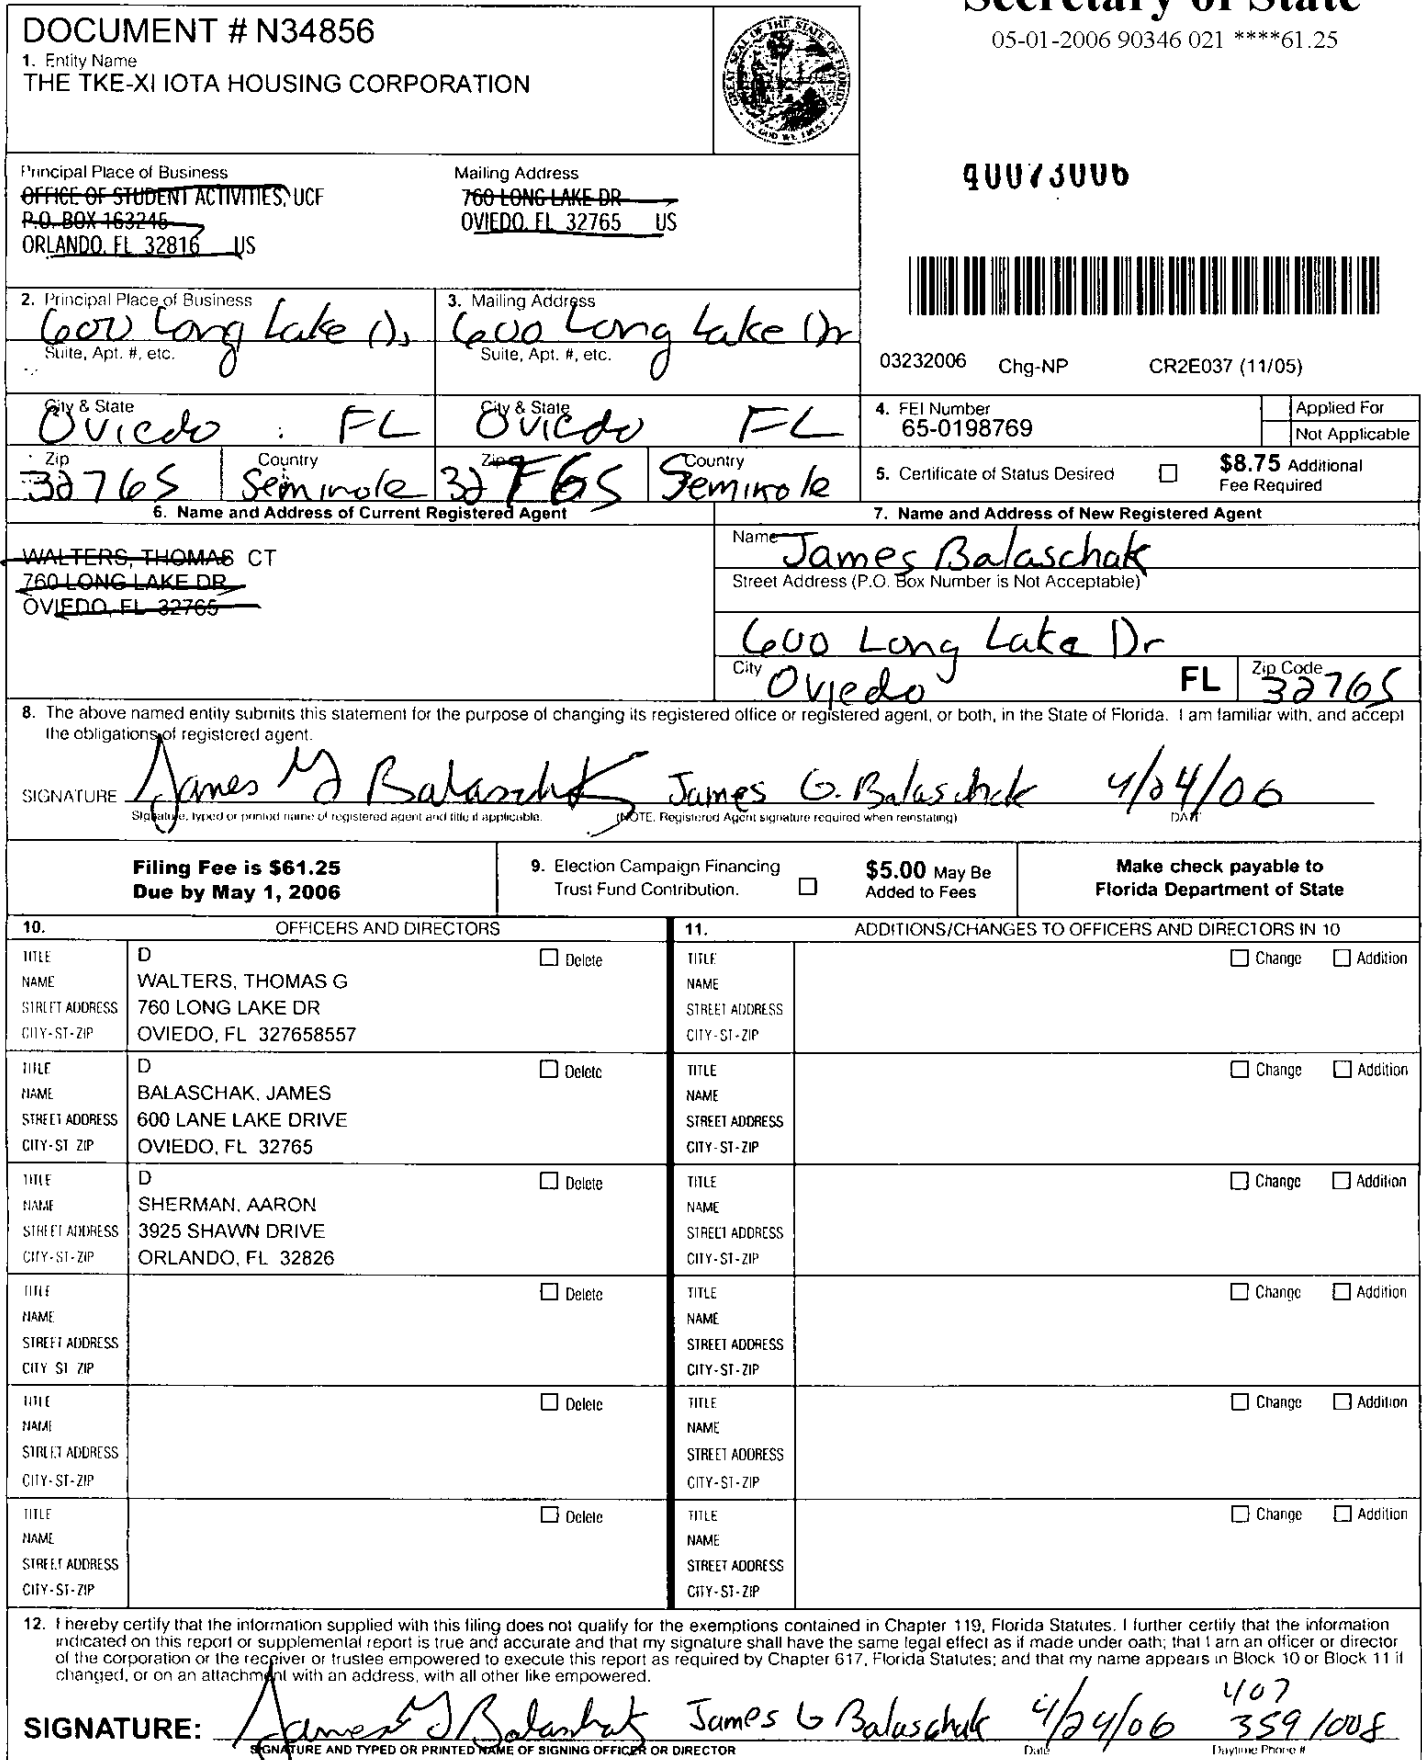 Secretary of State
05-01-2006 90346 021 ****61.25
DOCUMENT # N34856
1. Entity Name
THE TKE-XI IOTA HOUSING CORPORATION
GREAT SEAL OF THE STATE OF FLORIDA
IN GOD WE TRUST
40073006
Principal Place of Business
OFFICE OF STUDENT ACTIVITIES, UCF
P.O. BOX 163245
ORLANDO, FL 32816 US
Mailing Address
760 LONG LAKE DR
OVIEDO, FL 32765 US
2. Principal Place of Business
600 Long Lake Dr
Suite, Apt. #, etc.
3. Mailing Address
600 Long Lake Dr
Suite, Apt. #, etc.
03232006 Chg-NP CR2E037 (11/05)
City & State
Oviedo FL
City & State
Oviedo FL
4. FEI Number
65-0198769
Applied For
Not Applicable
Zip
32765
Country
Seminole
Zip
32765
Country
Seminole
5. Certificate of Status Desired
$8.75 Additional
Fee Required
6. Name and Address of Current Registered Agent
WALTERS, THOMAS CT
760 LONG LAKE DR
OVIEDO, FL 32765
7. Name and Address of New Registered Agent
Name
James Balaschak
Street Address (P.O. Box Number is Not Acceptable)
600 Long Lake Dr
City
Oviedo
FL
Zip Code
32765
8. The above named entity submits this statement for the purpose of changing its registered office or registered agent, or both, in the State of Florida. I am familiar with, and accept
the obligations of registered agent.
SIGNATURE James G Balaschak James G. Balaschak 4/24/06
Signature, typed or printed name of registered agent and title if applicable. (NOTE. Registered Agent signature required when reinstating) DATE
Filing Fee is $61.25
Due by May 1, 2006
9. Election Campaign Financing
Trust Fund Contribution.
$5.00 May Be
Added to Fees
Make check payable to
Florida Department of State
10. OFFICERS AND DIRECTORS
11. ADDITIONS/CHANGES TO OFFICERS AND DIRECTORS IN 10
TITLE D Delete
NAME WALTERS, THOMAS G
STREET ADDRESS 760 LONG LAKE DR
CITY-ST-ZIP OVIEDO, FL 327658557
TITLE Change Addition
NAME
STREET ADDRESS
CITY-ST-ZIP
TITLE D Delete
NAME BALASCHAK, JAMES
STREET ADDRESS 600 LANE LAKE DRIVE
CITY-ST ZIP OVIEDO, FL 32765
TITLE Change Addition
NAME
STREET ADDRESS
CITY-ST-ZIP
TITLE D Delete
NAME SHERMAN, AARON
STREET ADDRESS 3925 SHAWN DRIVE
CITY-ST-ZIP ORLANDO, FL 32826
TITLE Change Addition
NAME
STREET ADDRESS
CITY-ST-ZIP
TITLE Delete
NAME
STREET ADDRESS
CITY ST ZIP
TITLE Change Addition
NAME
STREET ADDRESS
CITY-ST-ZIP
TITLE Delete
NAME
STREET ADDRESS
CITY-ST-ZIP
TITLE Change Addition
NAME
STREET ADDRESS
CITY-ST-ZIP
TITLE Delete
NAME
STREET ADDRESS
CITY-ST-ZIP
TITLE Change Addition
NAME
STREET ADDRESS
CITY-ST-ZIP
12. I hereby certify that the information supplied with this filing does not qualify for the exemptions contained in Chapter 119, Florida Statutes. I further certify that the information
indicated on this report or supplemental report is true and accurate and that my signature shall have the same legal effect as if made under oath; that I am an officer or director
of the corporation or the receiver or trustee empowered to execute this report as required by Chapter 617, Florida Statutes; and that my name appears in Block 10 or Block 11 if
changed, or on an attachment with an address, with all other like empowered.
SIGNATURE: James G Balaschak James G Balaschak 4/24/06 407 359 1008
SIGNATURE AND TYPED OR PRINTED NAME OF SIGNING OFFICER OR DIRECTOR Date Daytime Phone #